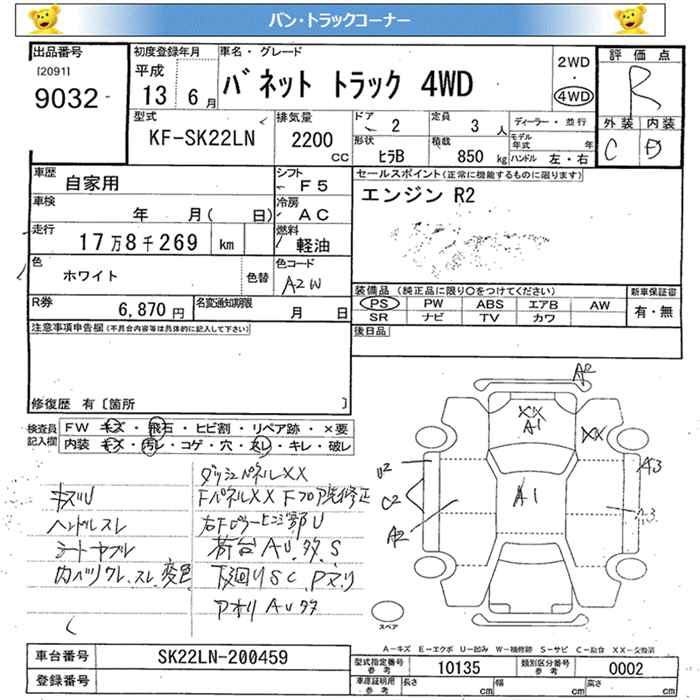 バン・トラックコーナー
出品番号
[2091]
9032
初度登録年月
平成
13 6月
車名・グレード
バネット トラック 4WD
2WD
4WD
評価点
R
型式
KF-SK22LN
排気量
2200
CC
ドア
2
定員
3 人
ディーラー・並行
モデル年式 年
形状
ヒラB
積載
850 kg
ハンドル 左・右
外装
内装
C
D
車歴
自家用
シフト
F5
車検
年 月( 日)
冷房
AC
走行
17万8千269 km
燃料
軽油
色
ホワイト
色替
色コード
A2W
R券
6,870 円
名変通知期限
月 日
セールスポイント(正常に機能するものに限ります)
エンジン R2
装備品(純正品に限り○をつけてください)
新車保証書
PS PW ABS エアB AW
有・無
SR ナビ TV カワ
後日品
注意事項申告欄(不具合内容等は具体的に記入して下さい)
修復歴 有〔箇所 〕
検査員記入欄
FW キズ・飛石・ヒビ割・リペア跡・×要
内装 キズ・汚レ・コゲ・穴・スレ・キレ・破レ
ダッシュパネルXX
キズU
FパネルXX Fフロア先修正
ハンドルスレ
右Fピラーヒンジ部U
シートヤブレ
荷台AU.タタ.S
内ハリワレ.スレ.変色
下回りSC.Pマリ
アオリAUタタ
A2
XX
A1
XX
U2
A3
C2
A1
A2
A3
スペア
A-キズ E-エクボ U-凹み W-補修跡 S-サビ C-腐蝕 XX-交換済
車台番号
SK22LN-200459
登録番号
型式指定番号
参考
10135
類別区分番号
参考
0002
車庫証明用
参考
長さ cm
幅 cm
高さ cm